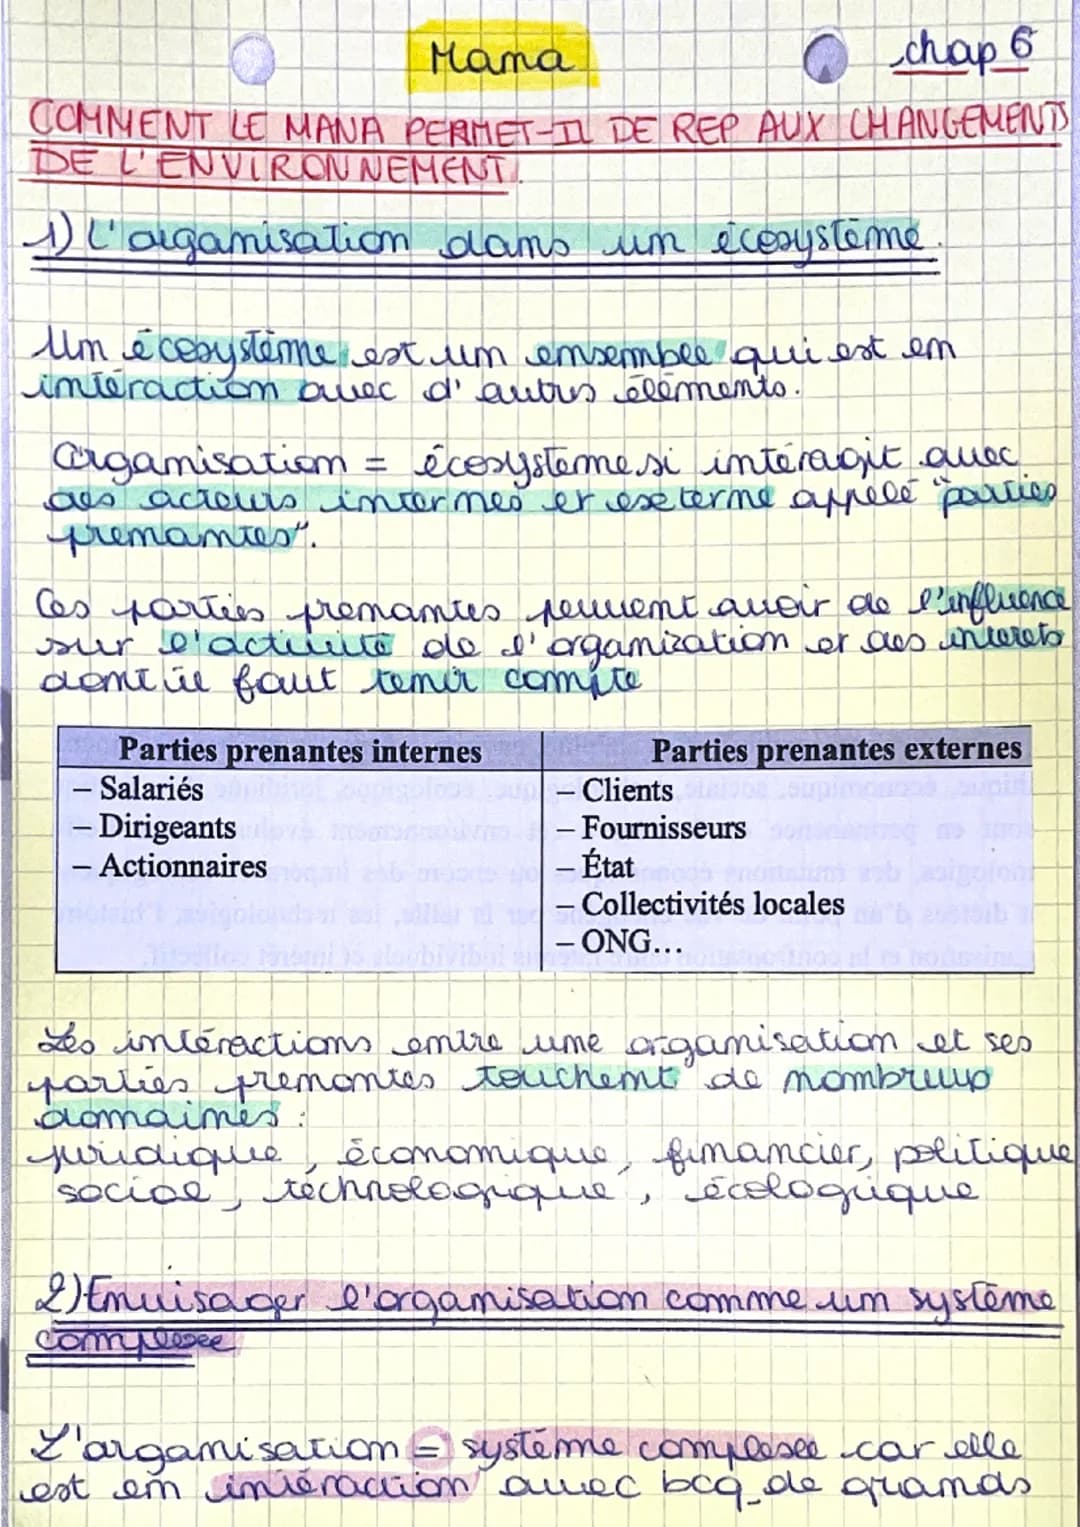 Mana
chap 6
COMMENT LE MANA PERMET-IL DE REP AUX CHANGEMENTS
DE L'ENVIRONNEMENT.
1) L'organisation dans un écosystème.
Un écosystème est un ensemble qui est en
intéraction avec d'autres éléments.
Organisation = écosystème si intéragit avec
des acteurs internes et externe appelé "parties
prenantes".
Ces parties prenantes peuvent avoir de l'influence
sur l'activité de l'organization et des interets
dont il faut tenir compte
Parties prenantes internes
Parties prenantes externes
– Salariés
– Clients
– Dirigeants
– Fournisseurs
– Actionnaires
– État
– Collectivités locales
– ONG…
Les intéractions entre une organisation et ses
parties prenantes touchent de nombreux
domaines :
juridique, économique, financier, politique
social, technologique, écologique
2) Envisager l'organisation comme un système
complexe
L'organisation = système complexe car elle
est en intéraction avec bcq de grands